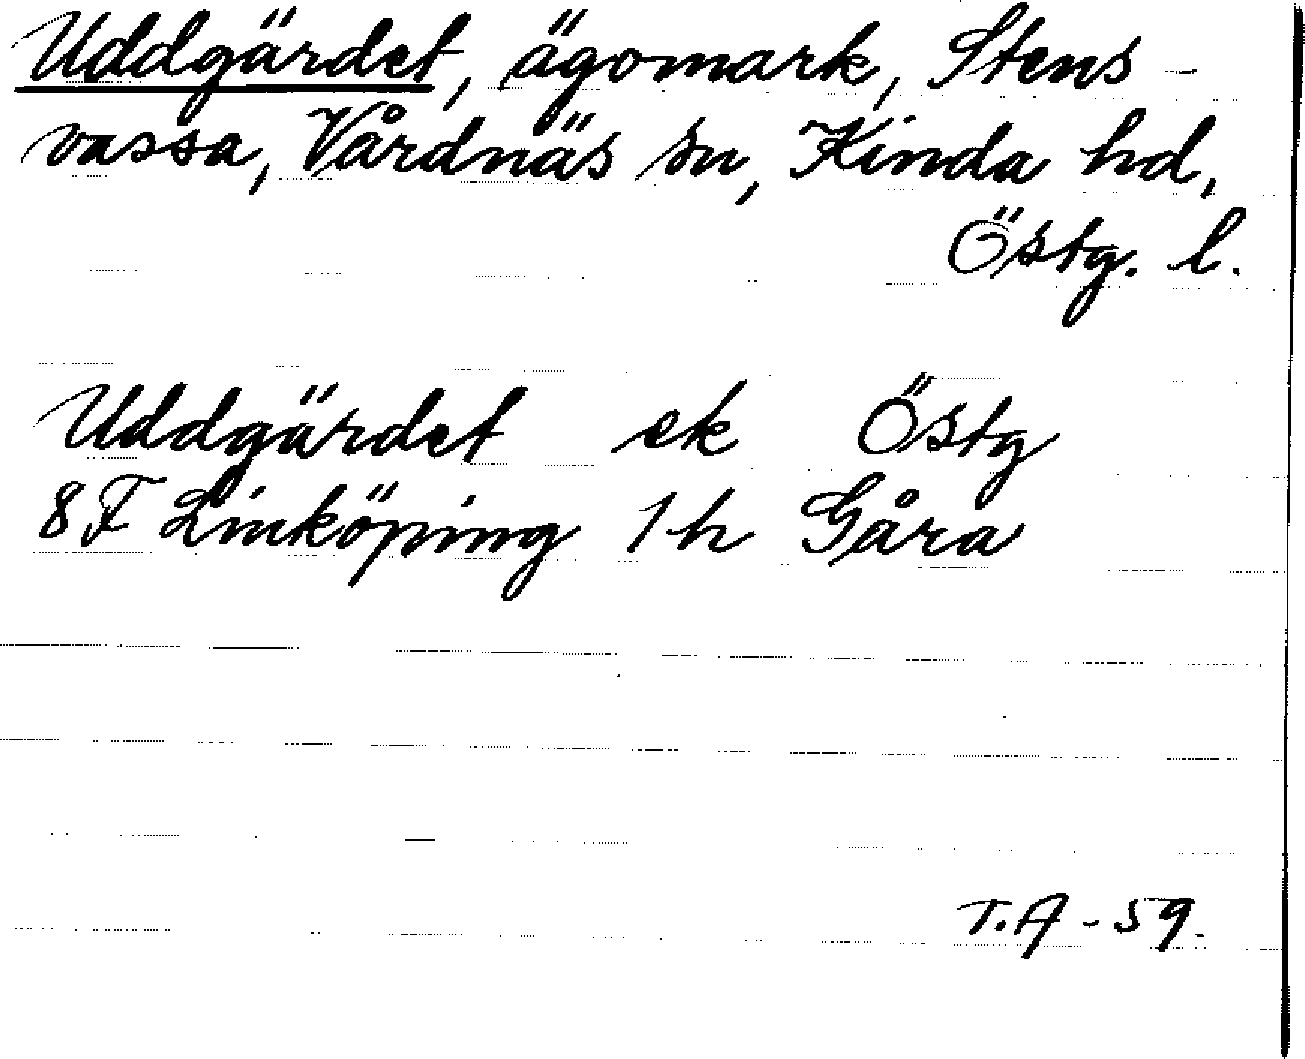 Uddgärdet, ägomark, Stens-
vassa, Vårdnäs sn, Kinda hd,
Östg. l.
Uddgärdet ek Östg
8F Linköping 1h Gåra
T.A -59.